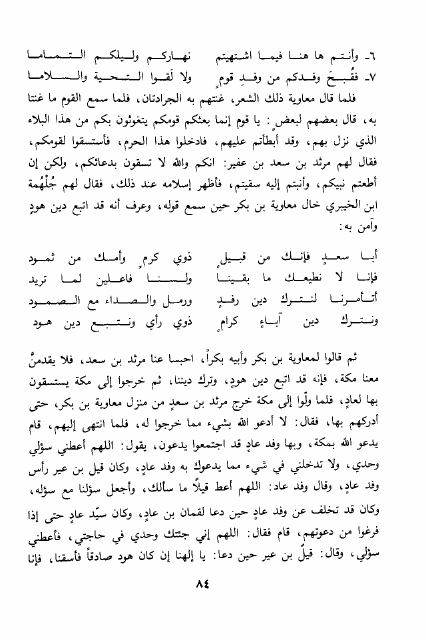 ٦ـ وأنتم ها هنا فيما اشتهيتم نهاركم وليلكم التماما
٧ـ فقُبحَ وفدكم من وفدِ قومٍ ولا لَقوا التحية والسلاما
فلما قال معاوية ذلك الشعر، غنتهم به الجرادتان، فلما سمع القوم ما غنتا
به، قال بعضهم لبعض: يا قوم إنما بعثكم قومكم يتغوثون بكم من هذا البلاء
الذي نزل بهم، وقد أبطأتم عليهم، فادخلوا هذا الحرم، فأستسقوا لقومكم،
فقال لهم مرثد بن سعد بن عفير: انكم والله لا تسقون بدعائكم، ولكن إن
أطعتم نبيكم، وأنبتم إليه سقيتم، فأظهر إسلامه عند ذلك، فقال لهم جُلْهُمة
ابن الخيبري خال معاوية بن بكر حين سمع قوله، وعرف أنه قد اتبع دين هودٍ
وآمن به:
أبا سعدٍ فإنك من قبيلٍ ذوي كرمٍ وأمك من ثمود
فإنا لا نطيعك ما بقينا ولسنا فاعلين لما تريد
أتأمرنا لنترك دين رفدٍ ورمل والصداء مع الصمود
ونترك دين آباءٍ كرامٍ ذوي رأي ونتبع دين هود
ثم قالوا لمعاوية بن بكر وأبيه بكراً، احبسا عنا مرثد بن سعد، فلا يقدمنُّ
معنا مكة، فإنه قد اتبع دين هودٍ، وترك ديننا، ثم خرجوا إلى مكة يستسقون
بها لعادٍ، فلما ولّوا إلى مكة خرج مرثد بن سعدٍ من منزل معاوية بن بكر، حتى
أدركهم بها، فقال: لا أدعو الله بشيء مما خرجوا له، فلما انتهى إليهم، قام
يدعو الله بمكة، وبها وفد عادٍ قد اجتمعوا يدعون، يقول: اللهم أعطني سؤلي
وحدي، ولا تدخلني في شيء مما يدعوك به وفد عادٍ، وكان قيل بن عير رأس
وفد عادٍ، وقال وفد عاد: اللهم أعط قيلًا ما سألك، وأجعل سؤلنا مع سؤله،
وكان قد تخلف عن وفد عادٍ حين دعا لقمان بن عادٍ، وكان سيّد عادٍ حتى إذا
فرغوا من دعوتهم، قام فقال: اللهم إني جئتك وحدي في حاجتي، فأعطني
سؤلي، وقال: قيلٌ بن عير حين دعا: يا إلهنا إن كان هود صادقاً فأسقنا، فإنا
٨٤